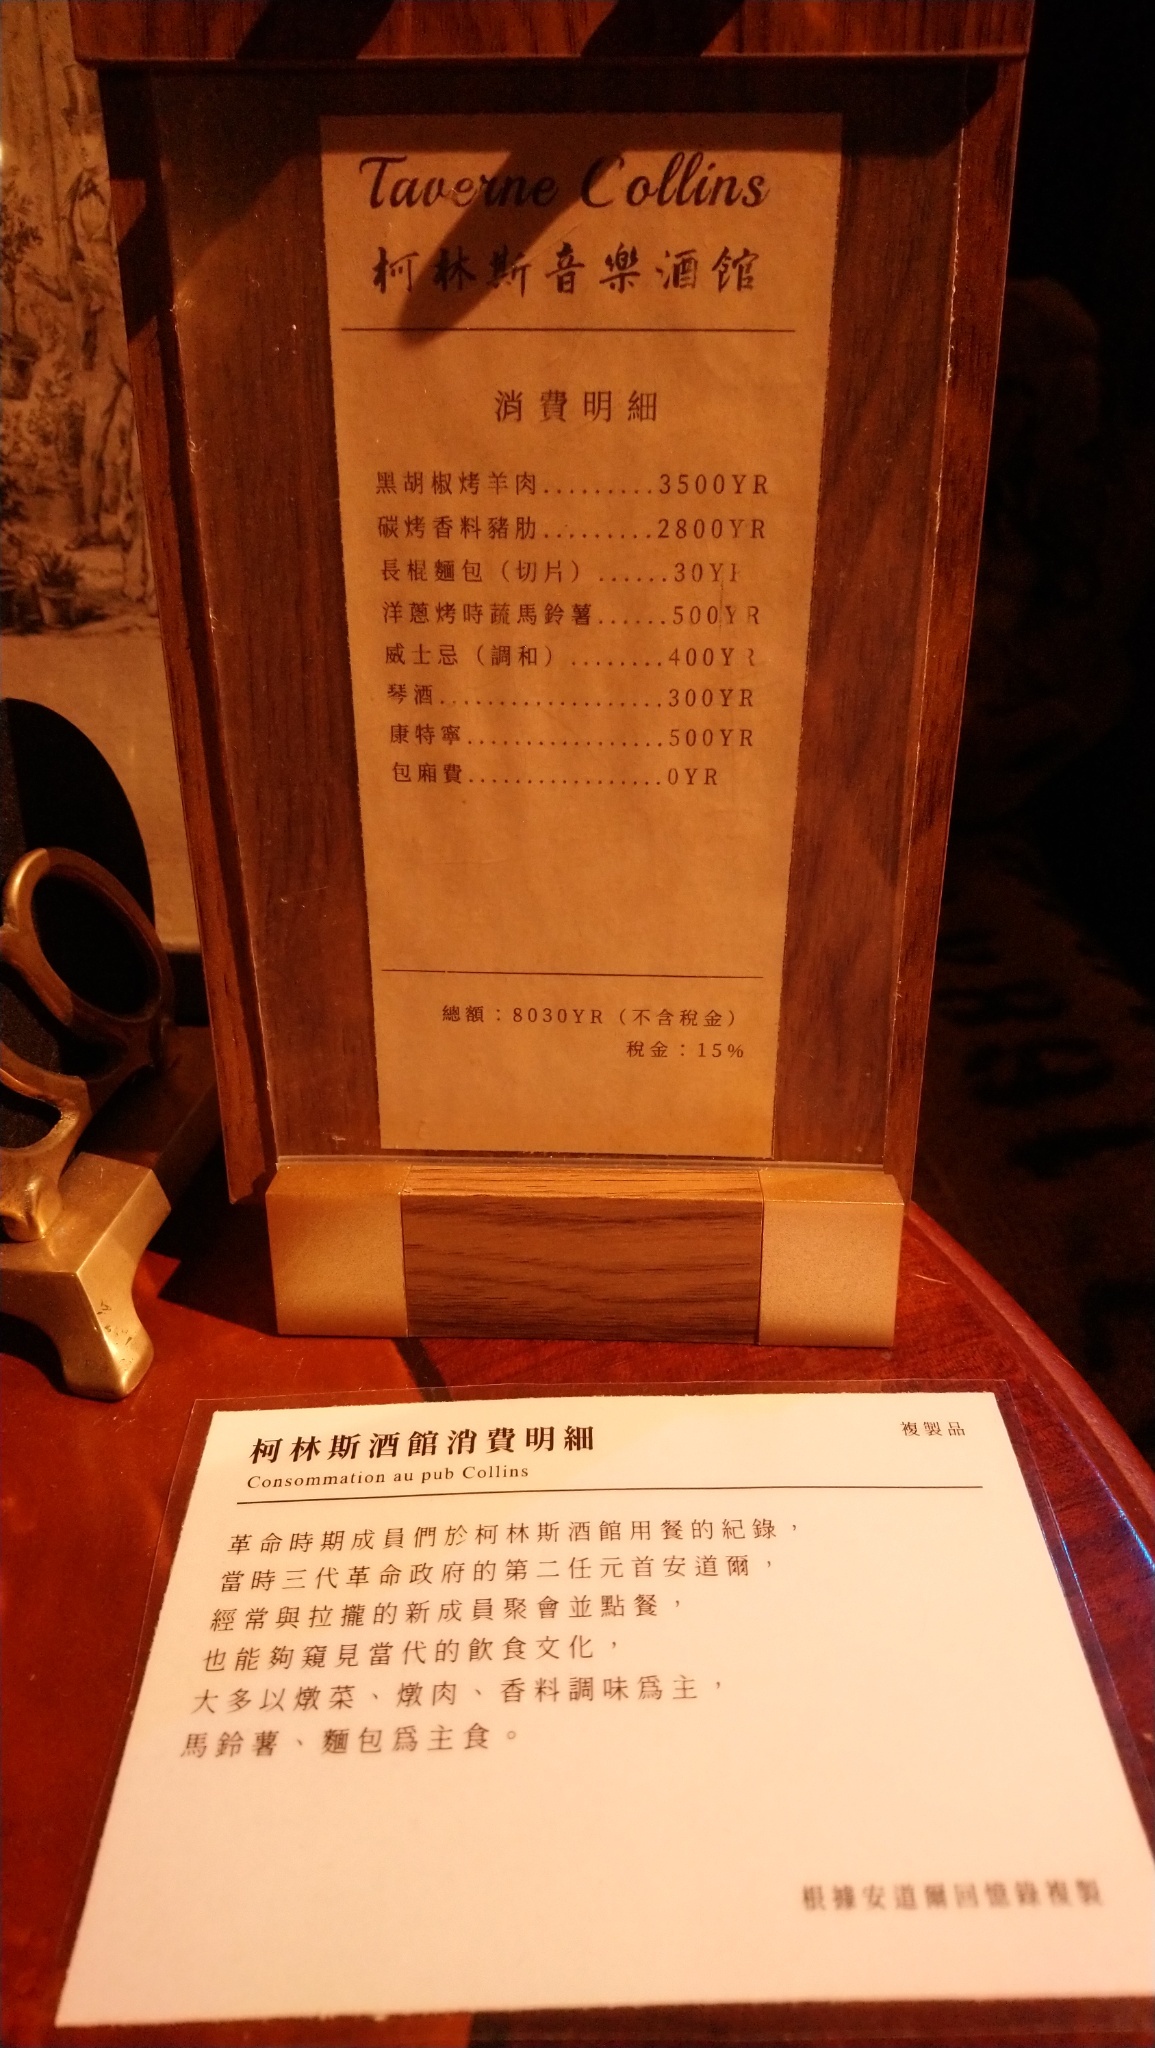 Taverne Collins
柯林斯音樂酒館
消費明細
黑胡椒烤羊肉.........3500YR
碳烤香料豬肋.........2800YR
長棍麵包（切片）......30YR
洋蔥烤時蔬馬鈴薯......500YR
威士忌（調和）........400YR
琴酒..................300YR
康特寧................500YR
包廂費..................0YR
總額：8030YR（不含稅金）
稅金：15%
柯林斯酒館消費明細
複製品
Consommation au pub Collins
革命時期成員們於柯林斯酒館用餐的紀錄，
當時三代革命政府的第二任元首安道爾，
經常與拉攏的新成員聚會並點餐，
也能夠窺見當代的飲食文化，
大多以燉菜、燉肉、香料調味爲主，
馬鈴薯、麵包爲主食。
根據安道爾回憶錄複製